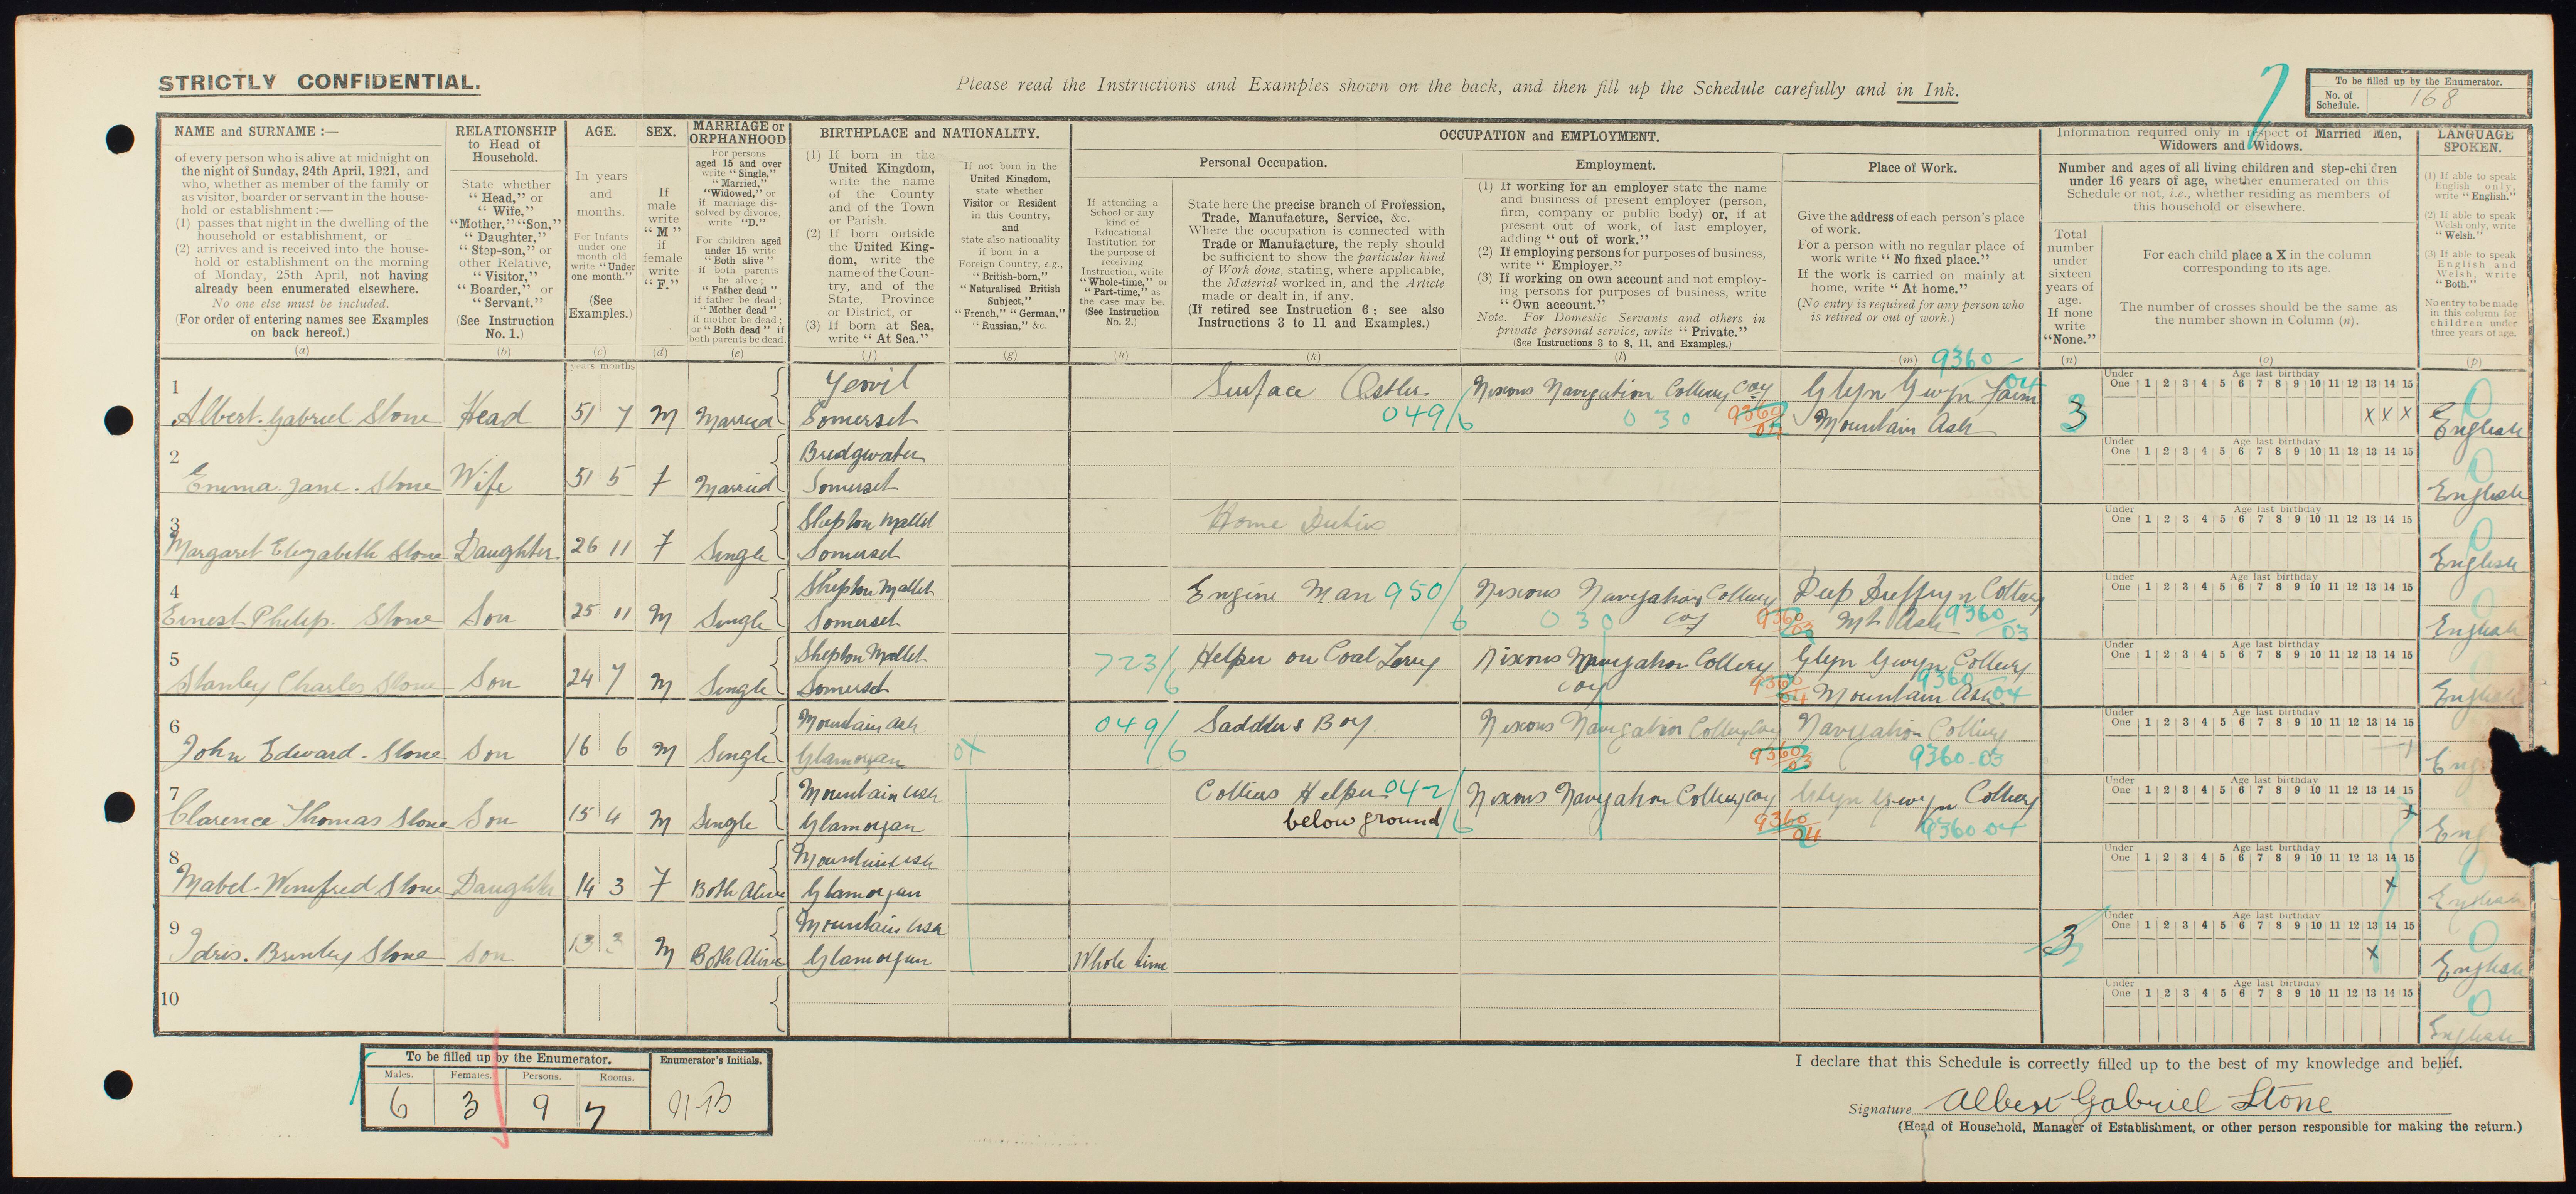 STRICTLY CONFIDENTIAL.
Please read the Instructions and Examples shown on the back, and then fill up the Schedule carefully and in Ink.
To be filled up by the Enumerator.
No. of Schedule. 168
NAME and SURNAME :—
of every person who is alive at midnight on
the night of Sunday, 24th April, 1921, and
who, whether as member of the family or
as visitor, boarder or servant in the house-
hold or establishment :—
(1) passes that night in the dwelling of the
household or establishment, or
(2) arrives and is received into the house-
hold or establishment on the morning
of Monday, 25th April, not having
already been enumerated elsewhere.
No one else must be included.
(For order of entering names see Examples
on back hereof.)
(a)
RELATIONSHIP
to Head of
Household.
State whether
"Head," or
"Wife,"
"Mother," "Son,"
"Daughter,"
"Step-son," or
other Relative,
"Visitor,"
"Boarder," or
"Servant."
(See Instruction
No. 1.)
(b)
AGE.
In years
and
months.
For Infants
under one
month old
write "Under
one month."
(See
Examples.)
(c)
years months
SEX.
If
male
write
"M"
if
female
write
"F."
(d)
MARRIAGE or
ORPHANHOOD
For persons
aged 15 and over
write "Single,"
"Married,"
"Widowed," or
if marriage dis-
solved by divorce,
write "D."
For children aged
under 15 write
"Both alive"
if both parents
be alive;
"Father dead"
if father be dead;
"Mother dead"
if mother be dead;
or "Both dead" if
both parents be dead.
(e)
BIRTHPLACE and NATIONALITY.
(1) If born in the
United Kingdom,
write the name
of the County
and of the Town
or Parish.
(2) If born outside
the United King-
dom, write the
name of the Coun-
try, and of the
State, Province
or District, or
(3) If born at Sea,
write "At Sea."
(f)
If not born in the
United Kingdom,
state whether
Visitor or Resident
in this Country,
and
state also nationality
if born in a
Foreign Country, e.g.,
"British-born,"
"Naturalised British
Subject,"
"French," "German,"
"Russian," &c.
(g)
OCCUPATION and EMPLOYMENT.
If attending a
School or any
kind of
Educational
Institution for
the purpose of
receiving
Instruction, write
"Whole-time," or
"Part-time," as
the case may be.
(See Instruction
No. 2.)
(h)
Personal Occupation.
State here the precise branch of Profession,
Trade, Manufacture, Service, &c.
Where the occupation is connected with
Trade or Manufacture, the reply should
be sufficient to show the particular kind
of Work done, stating, where applicable,
the Material worked in, and the Article
made or dealt in, if any.
(If retired see Instruction 6; see also
Instructions 3 to 11 and Examples.)
(k)
Employment.
(1) If working for an employer state the name
and business of present employer (person,
firm, company or public body) or, if at
present out of work, of last employer,
adding "out of work."
(2) If employing persons for purposes of business,
write "Employer."
(3) If working on own account and not employ-
ing persons for purposes of business, write
"Own account."
Note.—For Domestic Servants and others in
private personal service, write "Private."
(See Instructions 3 to 8, 11, and Examples.)
(l)
Place of Work.
Give the address of each person's place
of work.
For a person with no regular place of
work write "No fixed place."
If the work is carried on mainly at
home, write "At home."
(No entry is required for any person who
is retired or out of work.)
(m)
Information required only in respect of Married Men,
Widowers and Widows.
Number and ages of all living children and step-children
under 16 years of age, whether enumerated on this
Schedule or not, i.e., whether residing as members of
this household or elsewhere.
Total
number
under
sixteen
years of
age.
If none
write
"None."
(n)
For each child place a X in the column
corresponding to its age.
The number of crosses should be the same as
the number shown in Column (n).
(o)
LANGUAGE
SPOKEN.
(1) If able to speak
English only,
write "English."
(2) If able to speak
Welsh only, write
"Welsh."
(3) If able to speak
English and
Welsh, write
"Both."
No entry to be made
in this column for
children under
three years of age.
(p)
1 Albert Gabriel Stone Head 51 7 M Married Yeovil Somerset Surface Ostler 049/6 Nixons Navigation Colliery Coy 030 9360/04 Glyn Gwyn Farm Mountain Ash 9360 04 3 X X X English
2 Emma Jane Stone Wife 51 5 F Married Bridgwater Somerset English
3 Margaret Elizabeth Stone Daughter 26 11 F Single Shepton Mallet Somerset Home Duties English
4 Ernest Philip Stone Son 25 11 M Single Shepton Mallet Somerset Engine Man 950/6 Nixons Navigation Colliery Coy 030 9360/03 Deep Duffryn Colliery Mt Ash 9360/03 English
5 Stanley Charles Stone Son 24 7 M Single Shepton Mallet Somerset 723/6 Helper on Coal Lorry Nixons Navigation Colliery Coy 9360/04 Glyn Gwyn Colliery Mountain Ash 9360 04 English
6 John Edward Stone Son 16 6 M Single Mountain Ash Glamorgan 0X 049/6 Saddlers Boy Nixons Navigation Colliery Coy 9360/03 Navigation Colliery 9360-03 Eng
7 Clarence Thomas Stone Son 15 4 M Single Mountain Ash Glamorgan Colliers Helper 042/6 below ground Nixons Navigation Colliery Coy 9360/04 Glyn Gwyn Colliery 9360 04 X Eng
8 Mabel Winifred Stone Daughter 14 3 F Both Alive Mountain Ash Glamorgan X English
9 Idris Brinley Stone Son 13 3 M Both Alive Mountain Ash Glamorgan Whole time 3 X English
10 English
Under One 1 2 3 4 5 6 7 8 9 10 11 12 13 14 15
Age last birthday
To be filled up by the Enumerator.
Enumerator's Initials.
Males. Females. Persons. Rooms.
6 3 9 7
I declare that this Schedule is correctly filled up to the best of my knowledge and belief.
Signature Albert Gabriel Stone
(Head of Household, Manager of Establishment, or other person responsible for making the return.)